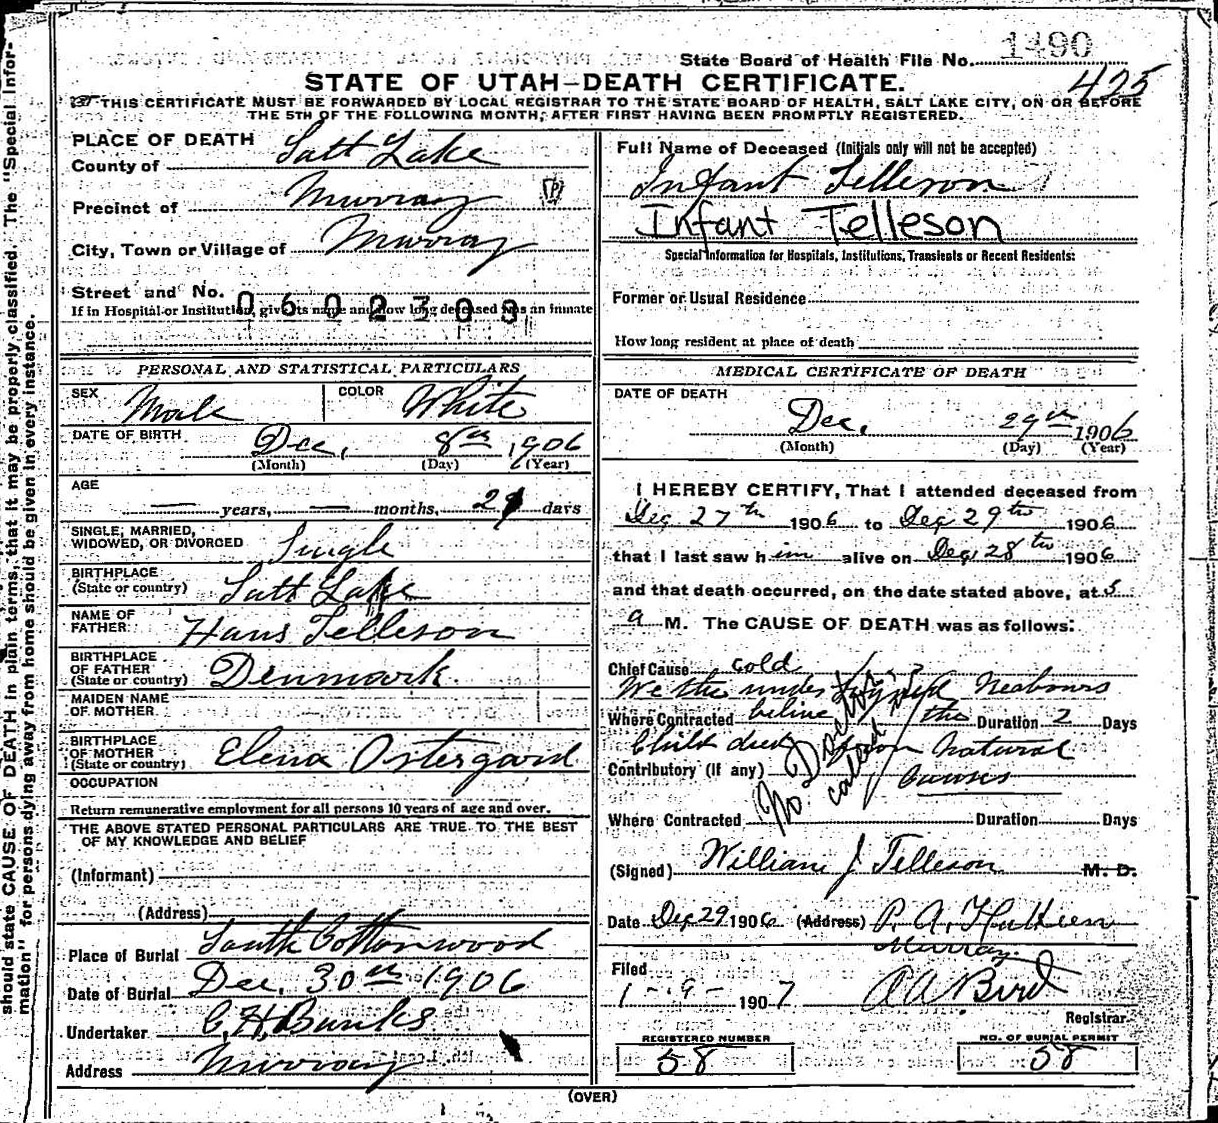 State Board of Health File No. 1490
425
STATE OF UTAH—DEATH CERTIFICATE.
THIS CERTIFICATE MUST BE FORWARDED BY LOCAL REGISTRAR TO THE STATE BOARD OF HEALTH, SALT LAKE CITY, ON OR BEFORE
THE 5TH OF THE FOLLOWING MONTH, AFTER FIRST HAVING BEEN PROMPTLY REGISTERED.
should state CAUSE OF DEATH in plain terms, that it may be properly classified. The "Special Infor-
mation" for persons dying away from home should be given in every instance.
PLACE OF DEATH
County of Salt Lake
Precinct of Murray
City, Town or Village of Murray
Street and No.
0602308
If in Hospital or Institution, give its name and how long deceased was an inmate
PERSONAL AND STATISTICAL PARTICULARS
SEX Male COLOR White
DATE OF BIRTH Dec, 8th 1906
(Month) (Day) (Year)
AGE
— years, — months, 21 days
SINGLE, MARRIED,
WIDOWED, OR DIVORCED Single
BIRTHPLACE
(State or country) Salt Lake
NAME OF
FATHER Hans Telleson
BIRTHPLACE
OF FATHER
(State or country) Denmark.
MAIDEN NAME
OF MOTHER
BIRTHPLACE
OF MOTHER
(State or country) Elena Ostergard
OCCUPATION
Return remunerative employment for all persons 10 years of age and over.
THE ABOVE STATED PERSONAL PARTICULARS ARE TRUE TO THE BEST
OF MY KNOWLEDGE AND BELIEF
(Informant)
(Address)
Place of Burial South Cottonwood
Date of Burial Dec. 30th 1906
Undertaker C, H, Banks
Address Murray
Full Name of Deceased (Initials only will not be accepted)
Infant Telleson
Infant Telleson
Special Information for Hospitals, Institutions, Transients or Recent Residents:
Former or Usual Residence
How long resident at place of death
MEDICAL CERTIFICATE OF DEATH
DATE OF DEATH
Dec. 29th 1906
(Month) (Day) (Year)
I HEREBY CERTIFY, That I attended deceased from
Dec 27th 1906 to Dec 29th 1906
that I last saw him alive on Dec 28th 1906
and that death occurred, on the date stated above, at 5
a M. The CAUSE OF DEATH was as follows:
Chief Cause cold
We the under Neabours
Where Contracted belive the Duration 2 Days
Child died from Natural
Contributory (if any) Causes
No Doctor called
Where Contracted Duration Days
(Signed) William J Telleson M. D.
Date Dec 29 1906 (Address) P. A.
Murray
Filed
1-9-1907 Bird
Registrar
REGISTERED NUMBER
58
NO. OF BURIAL PERMIT
58
(OVER)